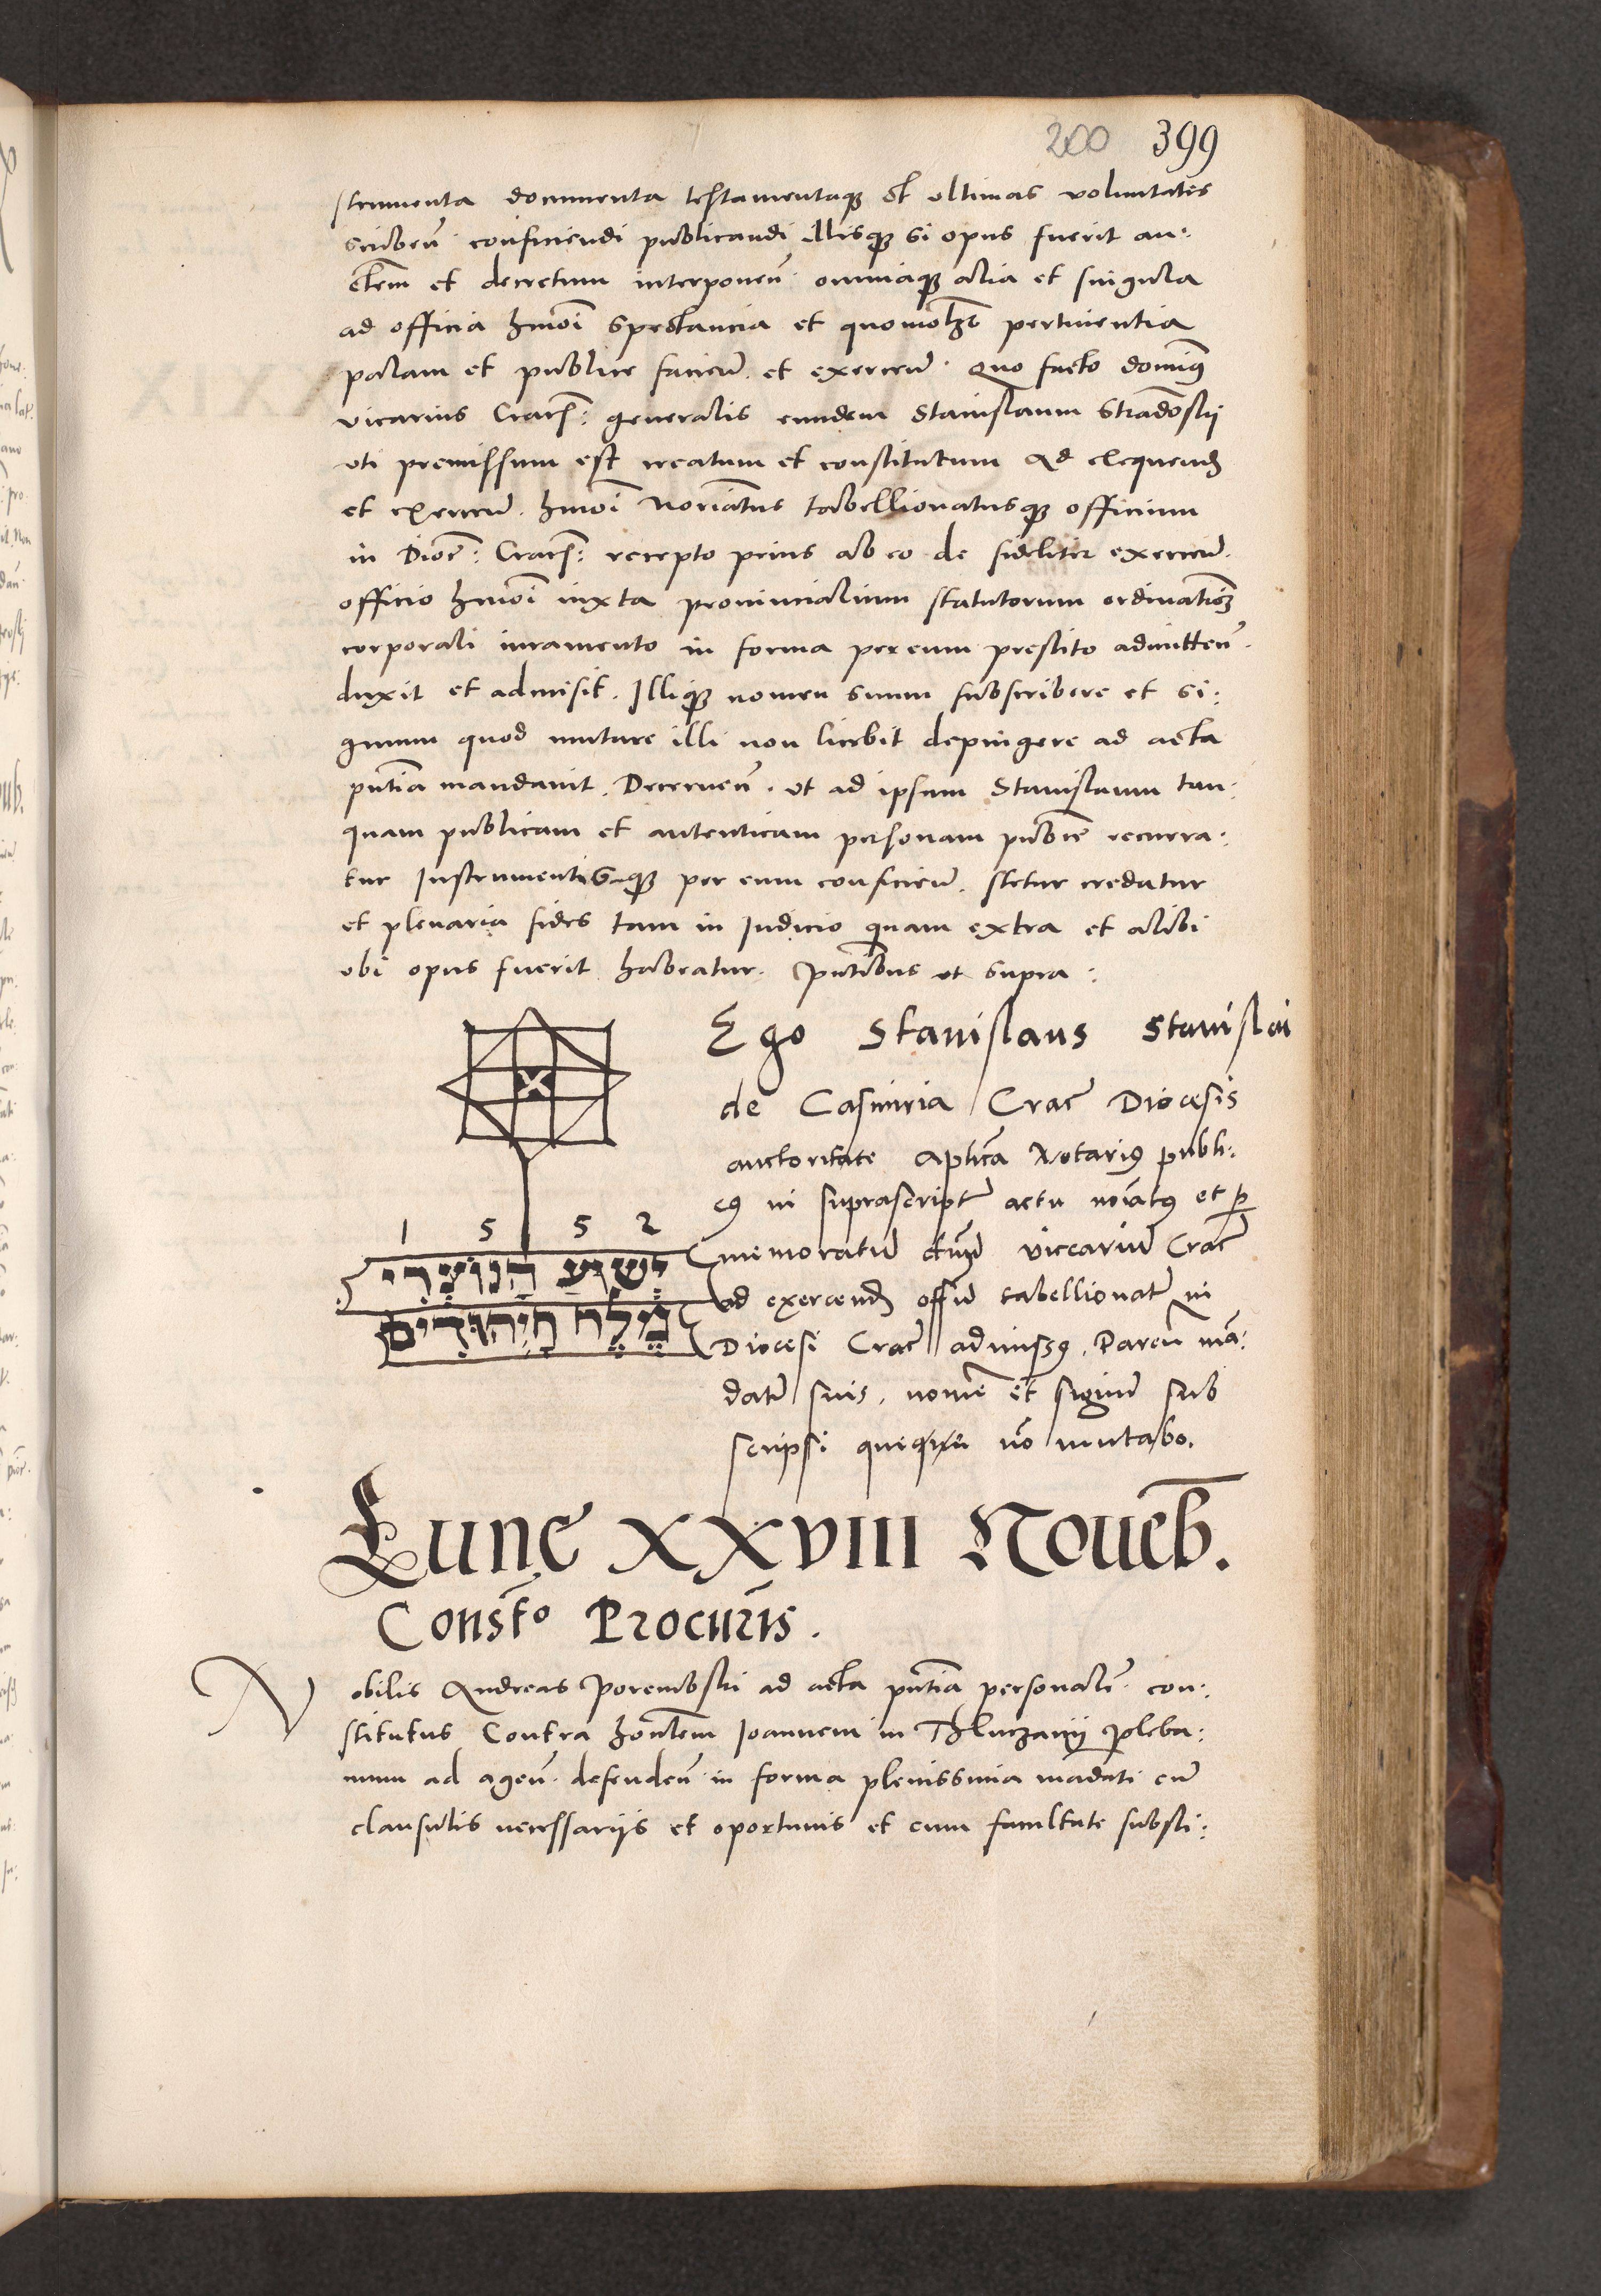 200 399
strumenta documenta testamentaque et ultimas voluntates
scriben̄. conficiendi publicandi illisque si opus fuerit au:
ctem et decretum interponen̄. omniaque alia et singula
ad officia hmōi spectancia et quomolt pertinentia
palam et publice facien̄. et exercen̄. Quo facto dominus
vicarius Cracn̄: generalis eundem Stanislaum Stradosky
uti premissum est creatum et constitutum ad exequend
et exercen̄. hmōi notriatus tabellionatusque officium
in Dioc: Cracn̄: recepto prius ab eo de fideliter exercen̄.
officio hmōi iuxta provincialium statutorum ordinationem
corporali iuramento in forma per eum prestito admitten̄.
duxit et admisit. Illique nomen suum subscribere et si:
gnum quod mutare illi non licebit depingere ad acta
pntia mandavit. Decernen̄. ut ad ipsum Stanislaum tan:
quam publicam et autenticam personam publice recurra:
tur Instrumentisque per eum conficien̄. stetur credatur
et plenaria fides tam in Iudicio quam extra et alibi
ubi opus fuerit habeatur. Pntibus ut supra:
Ego Stanislaus Stanislai
de Casimiria Crac Diocesis
auctoritate Aplica Notarius publi:
cus in suprascript actu noiatus et per
1 5 5 2
memoratum dnum viccarium Crac
ישוע הנוצרי
ad exercend offm tabellionat in
מלך היהודים
Diocesi Crac admissus. Paren mā:
dat suis. nome et signum sub
scripsi queque nō mutabo.
Lune XXVIII Noueb.
Constō Procuris.
Nobilis Andreas Porembski ad acta pntia personalr. con:
stitutus Contra honlem Ioannem in Thluczany pleba:
num ad agen̄. defenden̄. in forma plenissima madati cum
clausulis necessariis et oportunis et cum facultate substi: